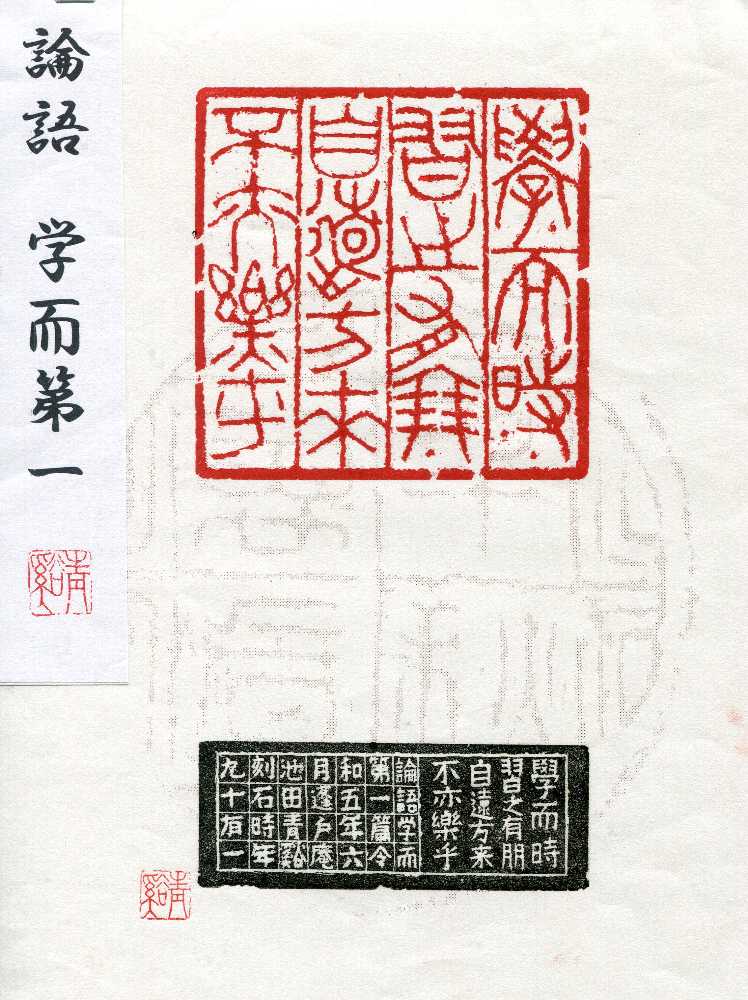 論語 学而第一
青谿
學而時
習之有朋
自遠方来
不亦樂乎
學而時
習之有朋
自遠方来
不亦樂乎
論語学而
第一篇令
和五年六
月蓬戸庵
池田青谿
刻石時年
九十有一
青谿